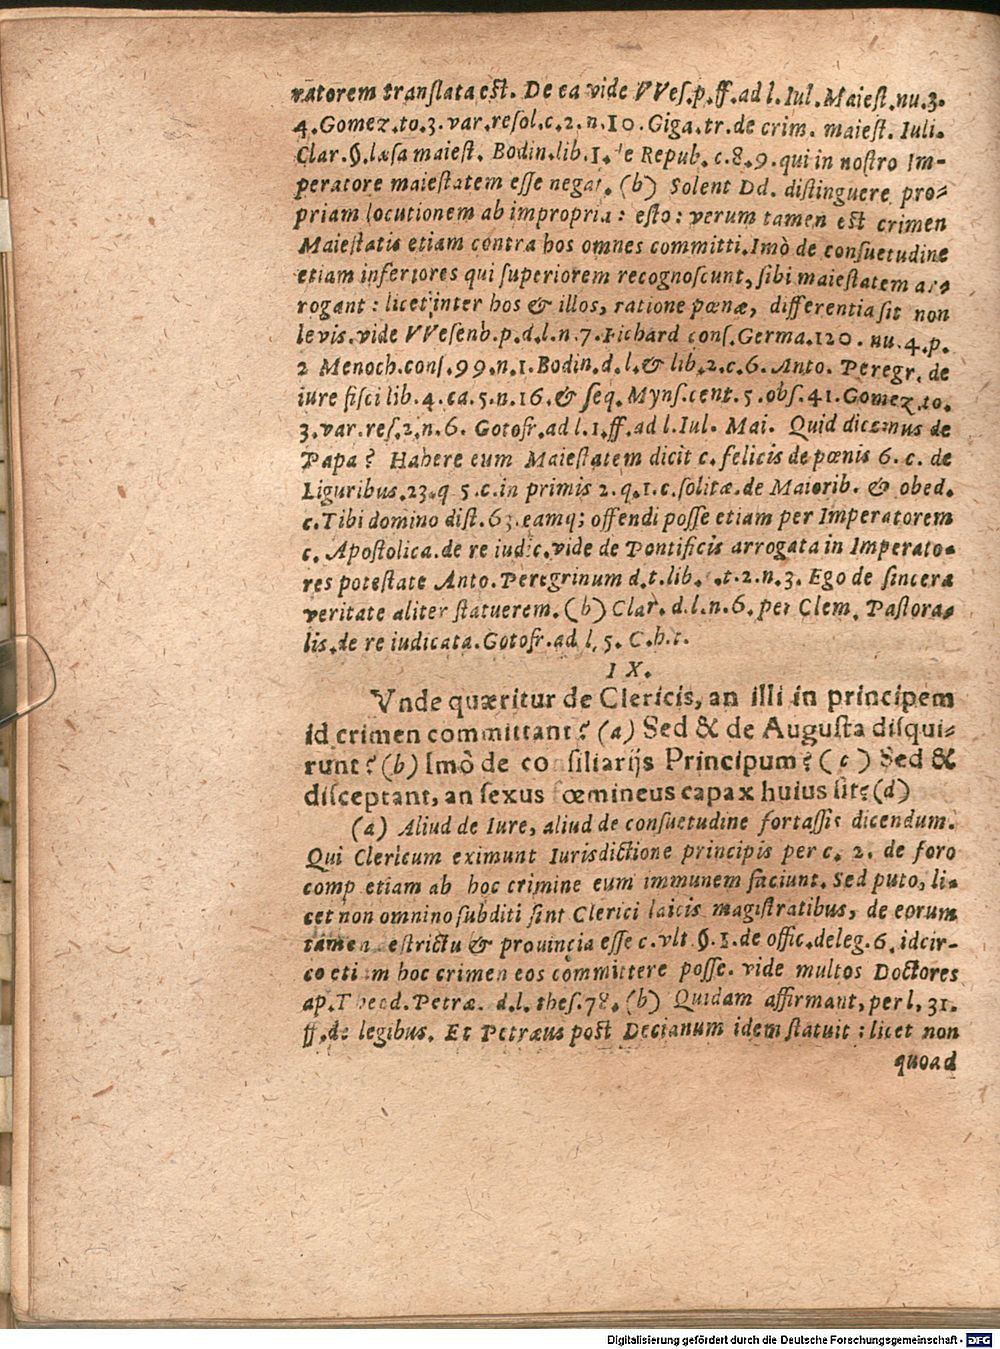 ratorem translata est. De ea vide VVes.p.ff.ad l. Iul. Maiest.nu.3.
4.Gomez.to.3.var.resol.c.2.n.10.Giga.tr.de crim. maiest. Iuli.
Clar.§.læsa maiest. Bodin.lib.1. de Repub. c.8.9.qui in nostro Im-
peratore maiestatem esse negat. (b) Solent Dd. distinguere pro-
priam locutionem ab impropria: esto: verum tamen est crimen
Maiestatis etiam contra hos omnes committi.Imò de consuetudine
etiam inferiores qui superiorem recognoscunt, sibi maiestatem ar-
rogant: licet inter hos & illos, ratione pœnæ, differentia sit non
levis.vide VVesenb.p.d.l.n.7.Fichard cons.Germa.120.nu.4.p.
2 Menoch.cons.99.n.1.Bodin.d.l.& lib.2.c.6.Anto. Peregr. de
iure fisci lib.4.ca.5.n.16.& seq.Myns.cent.5.obs.41.Gomez.to.
3.var.res.2.n.6. Gotofr.ad l.1.ff.ad l.Iul. Mai. Quid dicemus de
Papa? Habere eum Maiestatem dicit c.felicis de pœnis 6. c. de
Liguribus.23.q 5.c.in primis 2.q.1.c.solitæ.de Maiorib. & obed.
c.Tibi domino dist.63.eamq; offendi posse etiam per Imperatorem
c. Apostolica.de re iudic.vide de Pontificis arrogata in Imperato-
res potestate Anto.Peregrinum d.t.lib. .t.2.n.3. Ego de sincera
veritate aliter statuerem.(b) Clar. d.l.n.6. per Clem. Pastora-
lis.de re iudicata.Gotofr.ad l. 5. C.h.t.
IX.
Vnde quæritur de Clericis, an illi in principem
id crimen committant? (a) Sed & de Augusta disqui-
runt? (b) Imò de consiliarijs Principum? (c) Sed &
disceptant, an sexus fœmineus capax huius sit? (d)
(a) Aliud de Iure, aliud de consuetudine fortassis dicendum.
Qui Clericum eximunt Iurisdictione principis per c. 2. de foro
comp etiam ab hoc crimine eum immunem faciunt. Sed puto, li-
cet non omnino subditi sint Clerici laicis magistratibus, de eorum
tamen estrictu & provincia esse c.vlt §.1.de offic.deleg.6. idcir-
co etiam hoc crimen eos committere posse. vide multos Doctores
ap.Theod.Petræ. d.l. thes.78. (b) Quidam affirmant, per l. 31.
ff.de legibus. Et Petræus post Decianum idem statuit: licet non
quoad
Digitalisierung gefördert durch die Deutsche Forschungsgemeinschaft - DFG